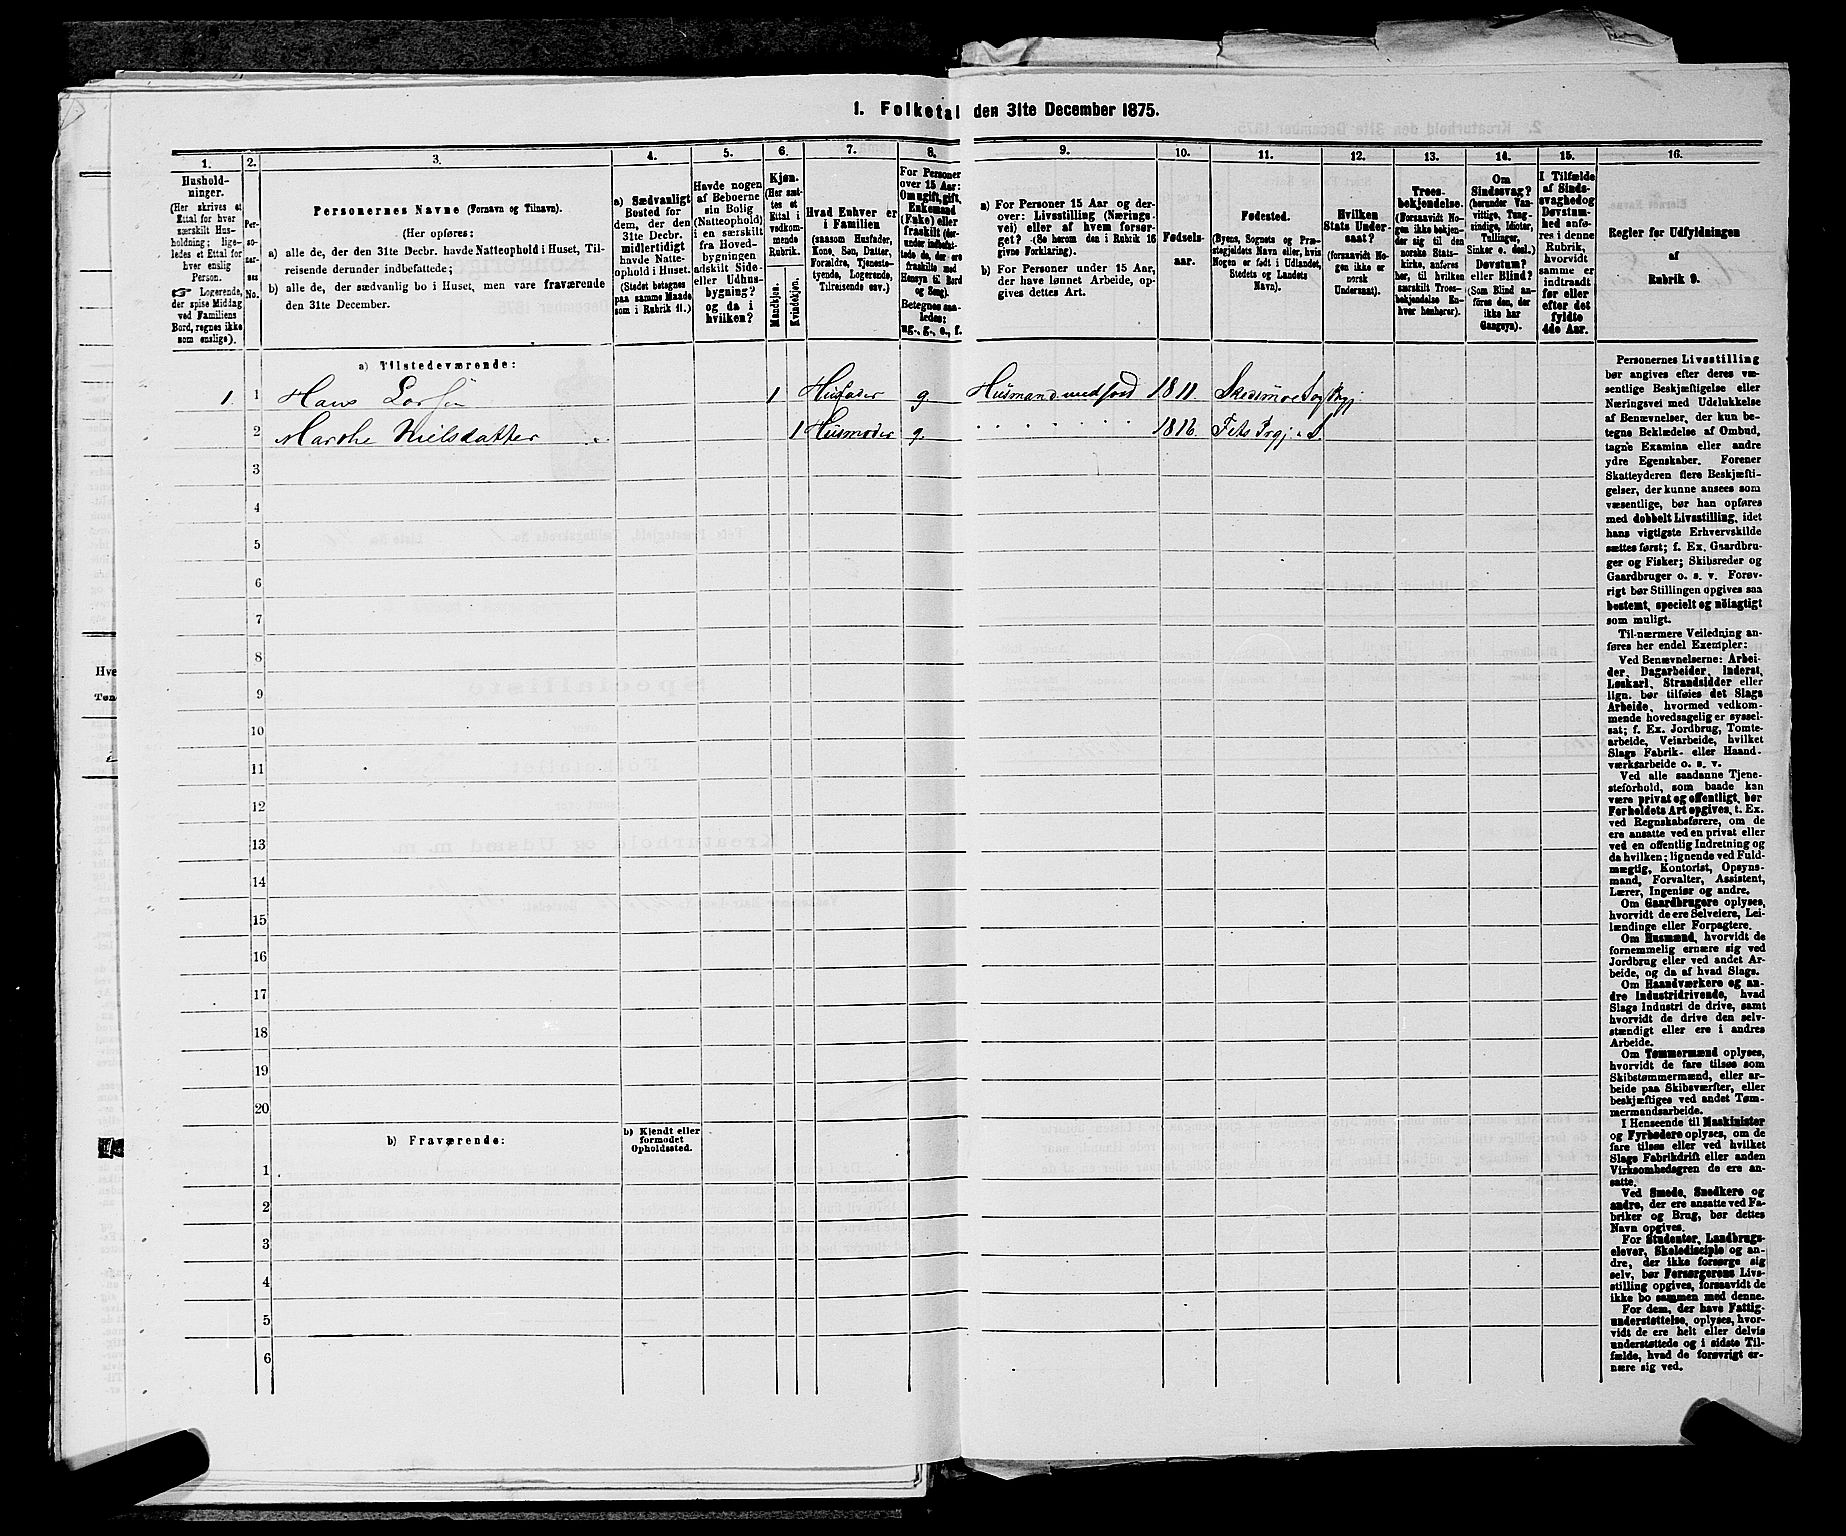 1. Folketal den 31te December 1875.
1.
2.
3.
4.
5.
6.
7.
8.
9.
10.
11.
12.
13.
14.
15.
16.
Hushold-
ninger.
(Her skrives et
Ettal for hver
særskilt Hus-
holdning; lige-
ledes et Ettal for
hver enslig
Person.
☞ Logerende,
der spise Middag
ved Familiens
Bord, regnes ikke
som enslige).
Per-
so-
ner-
nes
No.
Personernes Navne (Fornavn og Tilnavn).
(Her opføres:
a) alle de, der den 31te Decbr. havde Natteophold i Huset, Til-
reisende derunder indbefattede;
b) alle de, der sædvanlig bo i Huset, men vare fraværende
den 31te December.
a) Sædvanligt
Bosted for
dem, der den
31te Decbr.
midlertidigt
havde Natte-
ophold i Huset.
(Stedet betegnes
paa samme Maade
som i Rubrik 11.)
Havde nogen
af Beboerne
sin Bolig
(Natteophold)
i en særskilt
fra Hoved-
bygningen
adskilt Side-
eller Udhus-
bygning?
og da i
hvilken?
Kjøn.
(Her sæt-
tes et
Ettal i
vedkom-
mende
Rubrik.
Mandkjøn.
Kvindekjøn.
Hvad Enhver er
i Familien
(saasom Husfader,
Kone, Søn, Datter,
Forældre, Tjeneste-
tyende, Logerende,
Tilreisende osv.)
For Personer
over 15 Aar:
Om ugift, gift,
Enkemand
(Enke) eller
fraskilt (der-
under indbefat-
tede de, der ere
fraskilte med
Hensyn til Bord
og Seng).
Betegnes saa-
ledes:
ug., g., e., f.
a) For Personer 15 Aar og der-
over: Livsstilling (Nærings-
vei) eller af hvem forsør-
get? (Se herom den i Rubrik 16
givne Forklaring).
b) For Personer under 15 Aar,
der have lønnet Arbeide, op-
gives dettes Art.
Fødsels-
aar.
Fødested.
(Byens, Sognets og Præ-
stegjeldets Navn eller, hvis
Nogen er født i Udlandet,
Stedets og Landets
Navn).
Hvilken
Stats Under-
saat?
(forsaavidt No-
gen ikke er
norsk
Undersaat).
Troes-
bekjendelse.
(Forsaavidt No-
gen ikke bekjen-
der sig til den
norske Stats-
kirke, anføres
her, til hvilken
særskilt Troes-
bekjendelse En-
hver henhører).
Om
Sindssvag?
(herunder Van-
vittige, Tung-
sindige, Idioter,
Tullinger,
Sinker o. desl.)
Døvstum?
eller Blind?
(Som Blind an-
føres den, der
ikke har
Gangsyn).
I Tilfælde
af Sinds-
svaghed og
Døvstum-
hed anfø-
res i denne
Rubrik,
hvorvidt
samme er
indtraadt
før eller
efter det
fyldte
4de Aar.
Regler for Udfyldningen
af
Rubrik 9.
a) Tilstedeværende:
1. 1 Hans 1 Husfader g Husmand med Jord 1811.
2 Marthe Nielsdatter 1 Husmoder g. 1816.
3
4
5
6
7
8
9
10
11
12
13
14
15
16
17
18
19
20
b) Fraværende:
b) Kjendt eller
formodet
Opholdssted.
1
2
3
4
5
6
Personernes Livsstilling
bør angives efter deres væ-
sentlige Beskjæftigelse eller
Næringsvei med Udelukkelse
af Benævnelser, der kun be-
tegne Beklædelse af Ombud,
tagne Examina eller andre
ydre Egenskaber. Forener
Skatteyderen flere Beskjæfti-
gelser, der kunne ansees som
væsentlige, bør han opføres
med dobbelt Livsstilling, idet
hans vigtigste Erhvervskilde
sættes først; f. Ex. Gaardbru-
ger og Fisker; Skibsreder og
Gaardbruger o. s. v. Forøv-
rigt bør Stillingen opgives saa
bestemt, specielt og nöiagtigt
som muligt.
Til nærmere Veiledning an-
føres her endel Exempler:
Ved Benævnelserne: Arbei-
der, Dagarbeider, Inderst,
Løskarl, Strandsidder eller
lign. bør tilføies det Slags
Arbeide, hvormed vedkom-
mende hovedsagelig er syssel-
sat; f. Ex. Jordbrug, Tomte-
arbeide, Veiarbeide, hvilket
Slags Fabrik- eller Haand-
værksarbeide o. s. v.
Ved alle saadanne Tjene-
steforhold, som baade kan
være privat og offentligt, bør
Forholdets Art opgives, t. Ex.
ved Regnskabsførere, om de
ere ansatte ved en privat eller
ved en offentlig Indretning og
da hvilken; lignende ved Fuld-
mægtig, Kontorist, Opsyns-
mand, Forvalter, Assistent,
Lærer, Ingeniør og andre.
Om Gaardbrugere oplyses,
hvorvidt de ere Selveiere, Lei-
lændinge eller Forpagtere.
Om Husmænd, hvorvidt de
fornemmelig ernære sig ved
Jordbrug eller ved andet Ar-
beide, og da af hvad Slags.
Om Haandværkere og an-
dre Industridrivende, hvad
Slags Industri de drive, samt
hvorvidt de drive den selv-
stændigt eller ere i andres
Arbeide.
Om Tømmermænd oplyses,
hvorvidt de fare tilsøs som
Skibstømmermænd, eller ar-
beide paa Skibsværfter, eller
beskjæftiges ved andet Tøm-
mermandsarbeide.
I Henseende til Maskinister
og Fyrbødere oplyses, om de
fare tilsøs eller ved hvilket
Slags Fabrikdrift eller anden
Virksomhedsgren de ere an-
satte.
Ved Smede, Snedkere og
andre, der ere ansatte ved Fa-
briker og Brug, bør dettes
Navn opgives.
For Studenter, Landbrugs-
elever, Skoledisciple og an-
dre, der ikke forsørge sig
selv, bør Forsørgerens Livs-
stilling opgives, forsaavidt de
ikke bo sammen med denne.
For dem, der have Fattig-
understøttelse, oplyses, hvor-
vidt de ere helt eller delvis
understøttede og i sidste Til-
fælde, hvad de forøvrigt er-
nære sig ved.